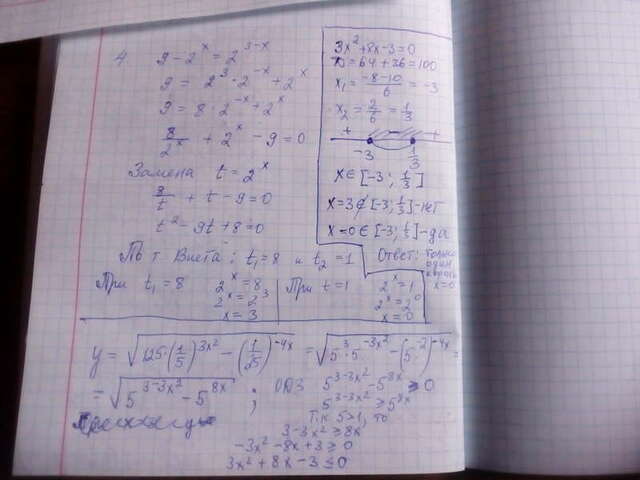 4
9 - 2^x = 2^{3-x}
9 = 2^3 · 2^{-x} + 2^x
9 = 8 · 2^{-x} + 2^x
8/2^x + 2^x - 9 = 0
Замена t = 2^x
8/t + t - 9 = 0
t^2 - 9t + 8 = 0
По т. Виета: t_1 = 8 и t_2 = 1
При t_1 = 8 2^x = 8
2^x = 2^3
x = 3
При t = 1 2^x = 1
2^x = 2^0
x = 0
3x^2 + 8x - 3 = 0
D = 64 + 36 = 100
x_1 = (-8-10)/6 = -3
x_2 = 2/6 = 1/3
+ - +
-3 1/3
x ∈ [-3; 1/3]
x = 3 ∉ [-3; 1/3] - нет
x = 0 ∈ [-3; 1/3] - да
Ответ: только
один
корень
x = 0
y = √(125 · (1/5)^{3x^2} - (1/25)^{-4x}) = √(5^3 · 5^{-3x^2} - (5^{-2})^{-4x}) =
= √(5^{3-3x^2} - 5^{8x}) ; ОДЗ 5^{3-3x^2} - 5^{8x} ≥ 0
5^{3-3x^2} ≥ 5^{8x}
Т.к 5>1, то
3 - 3x^2 ≥ 8x
-3x^2 - 8x + 3 ≥ 0
3x^2 + 8x - 3 ≤ 0